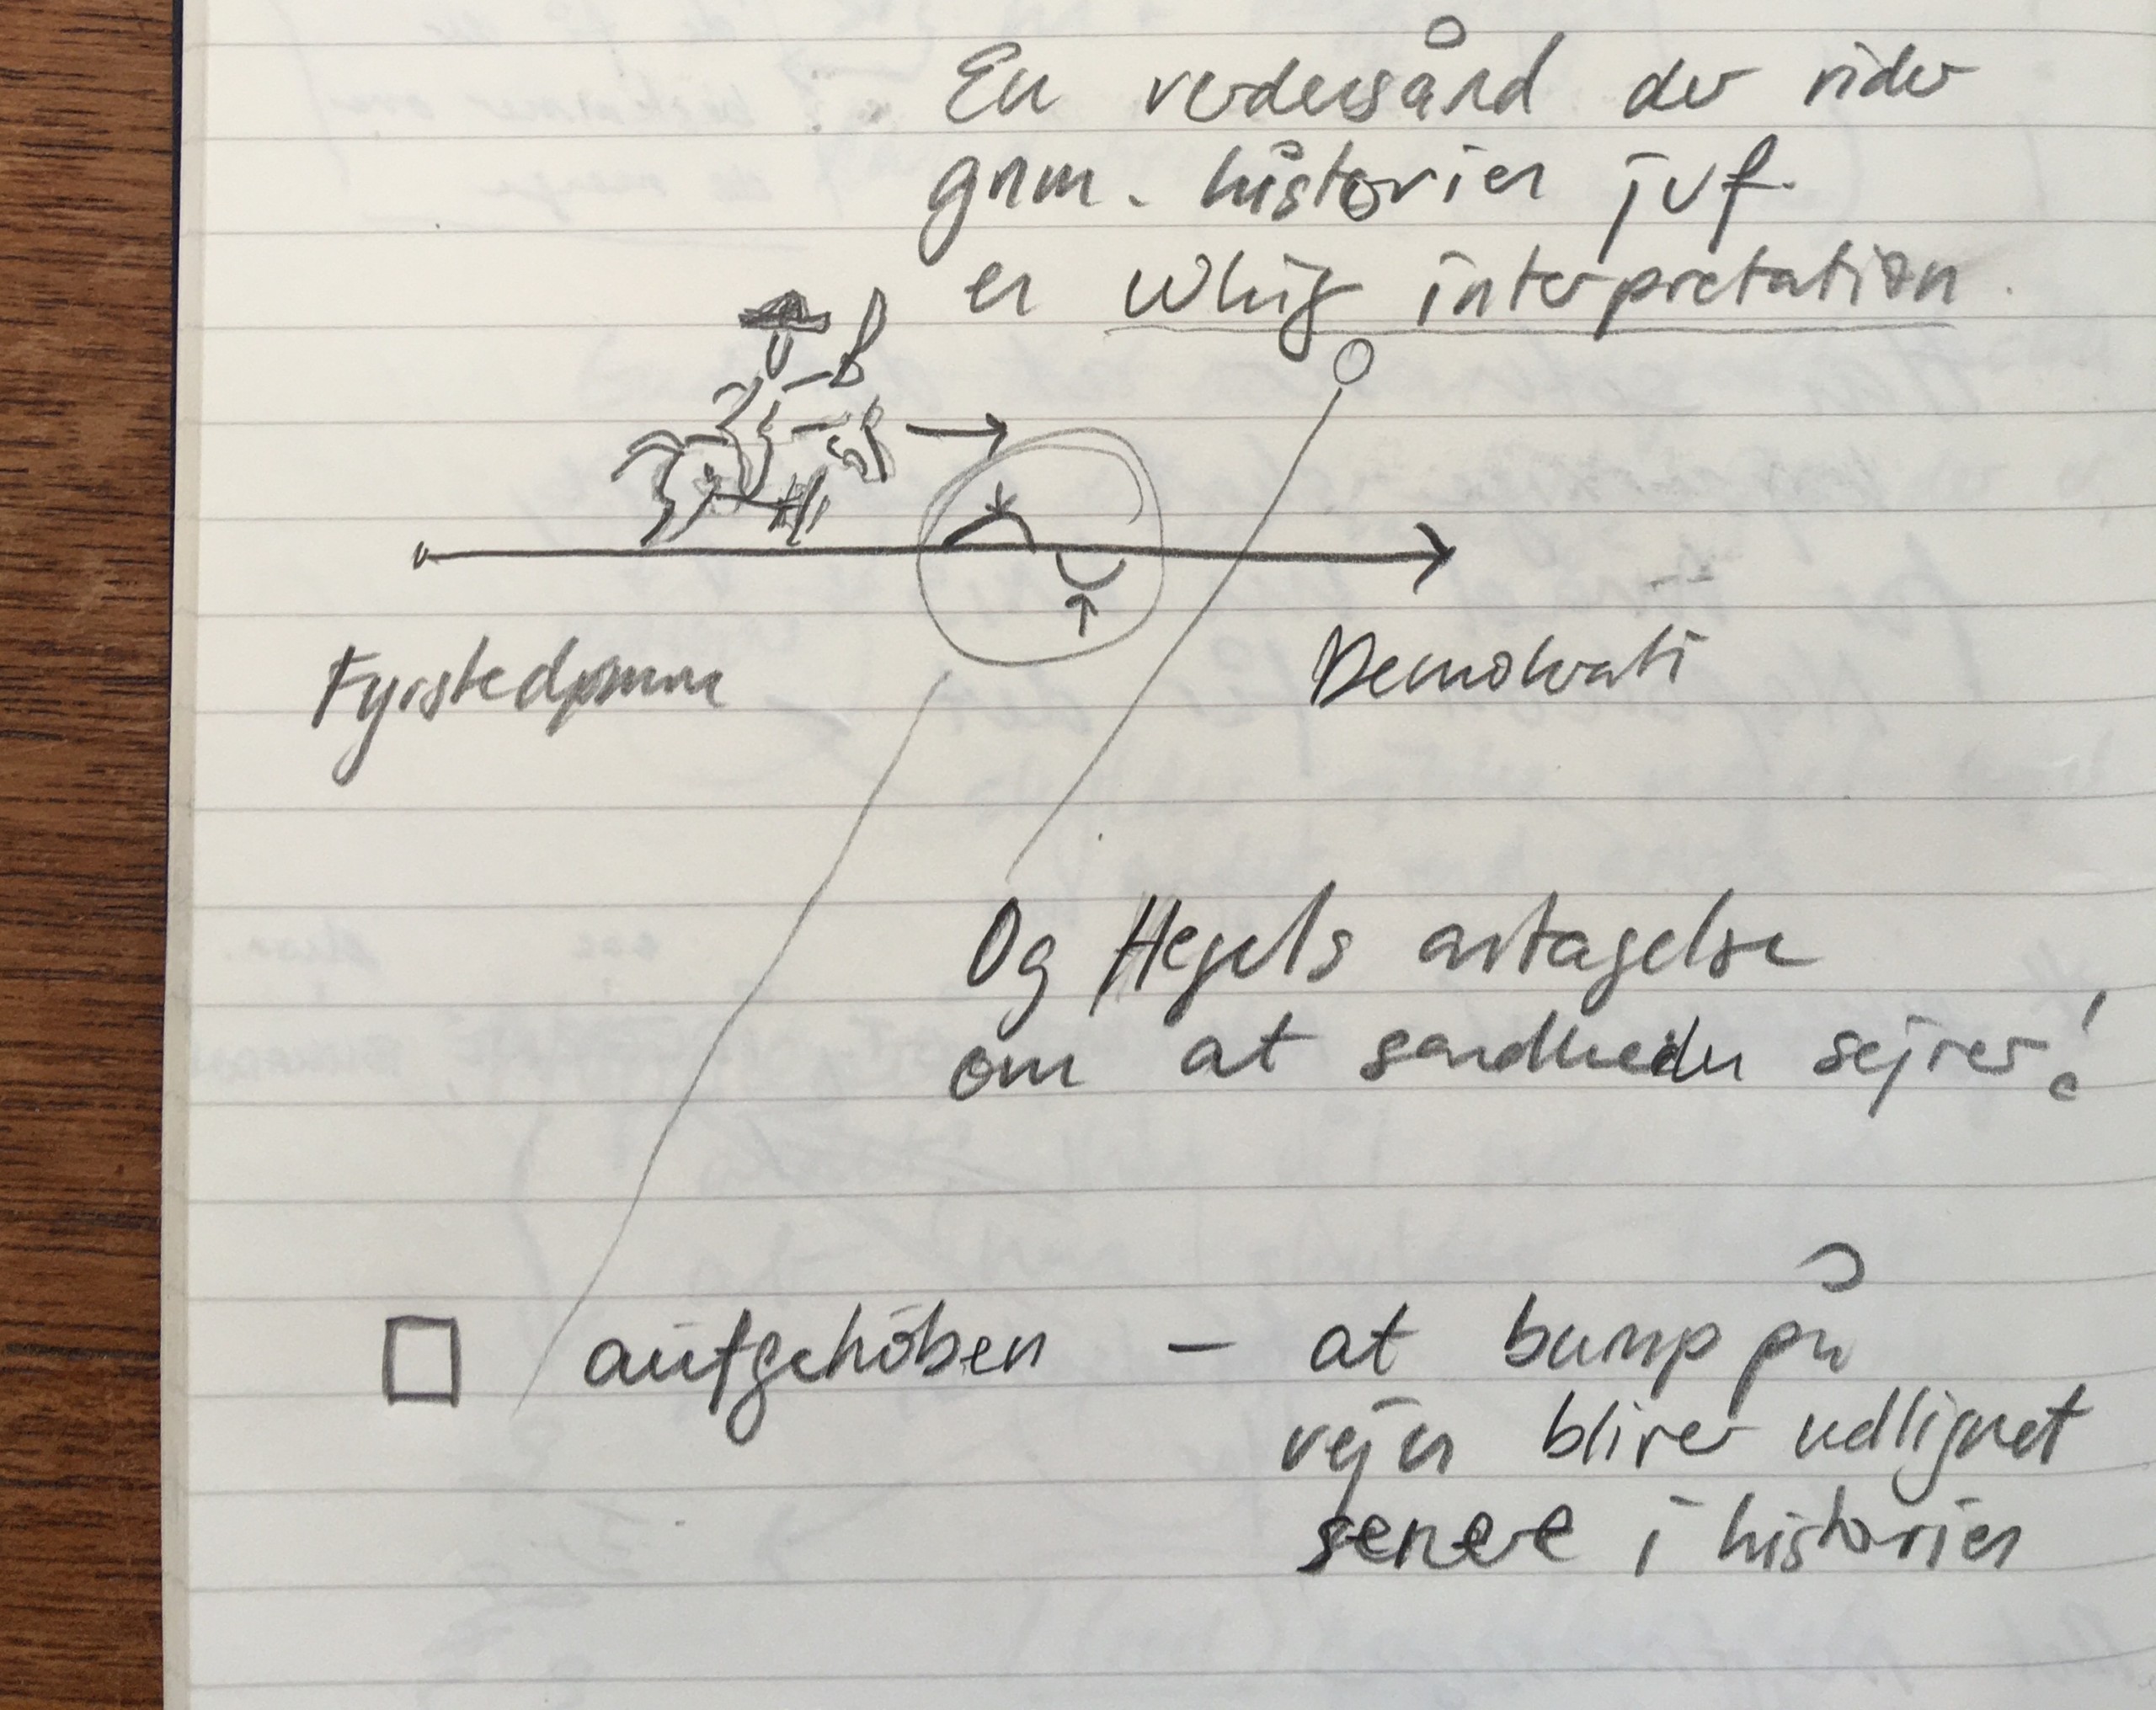 En verdensånd der rider
gnm. historien jvf.
en Whig interpretation.
Fyrstedømme
Demokrati
Og Hegels antagelse
om at sandheden sejrer!
aufgehoben – at bump på
vejen bliver udlignet
senere i historien